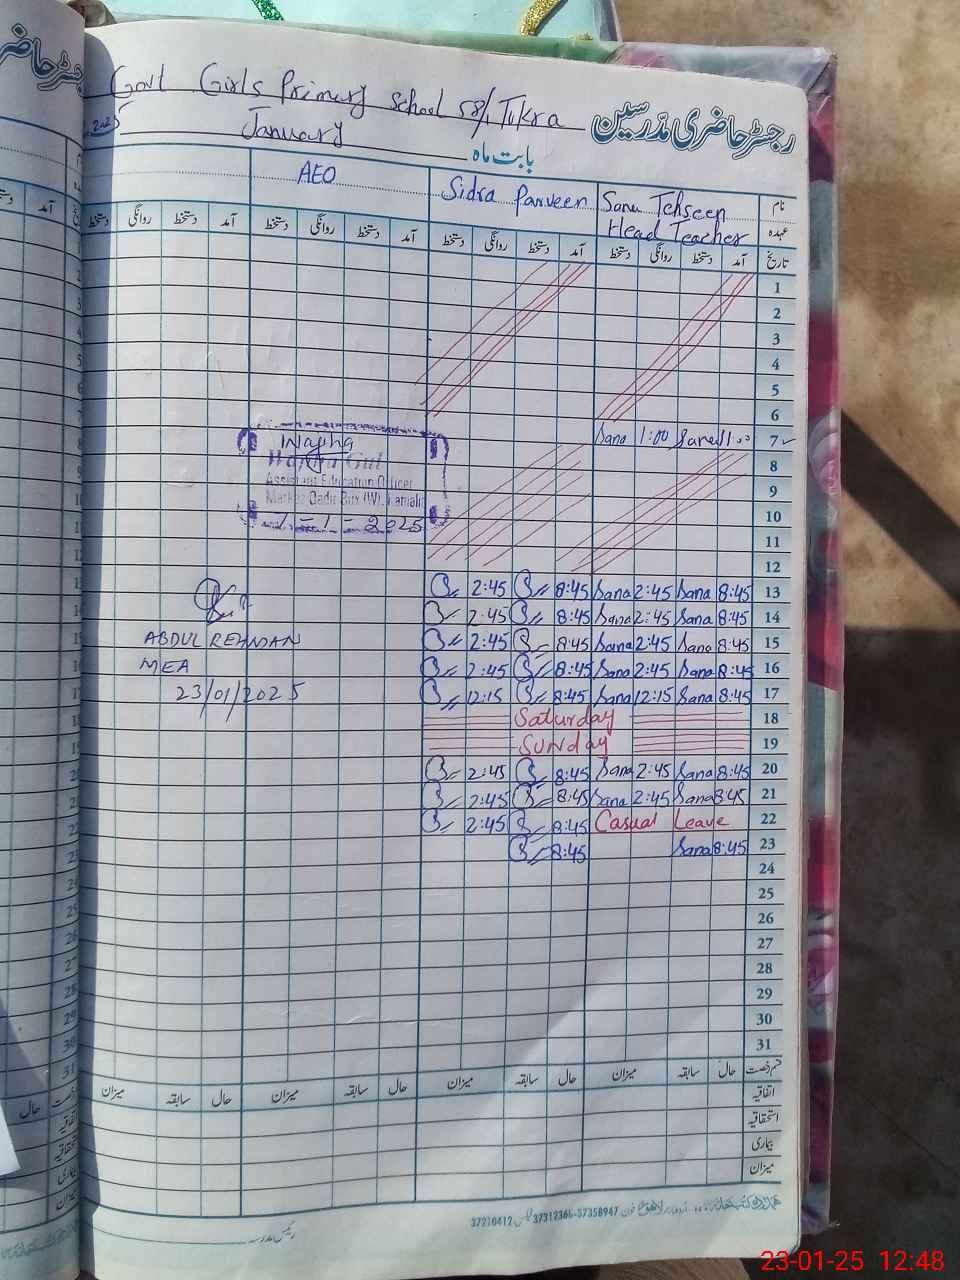 Govt Girls Primary School 58/1 Tukra
رجسٹر حاضری مدرسین
2025
January
بابت ماہ
AEO
Sidra Parveen
Sana Tehseen
نام
Head Teacher
عہدہ
دستخط روانگی دستخط آمد دستخط روانگی دستخط آمد دستخط روانگی دستخط آمد دستخط روانگی دستخط آمد تاریخ
1
2
3
4
5
6
Sana 1:00 Sana 11:00 7
8
9
Assistant Education Officer
10
7-1-2025
11
12
2:45 8:45 Sana 2:45 Sana 8:45 13
2:45 8:45 Sana 2:45 Sana 8:45 14
ABDUL REHMAN
2:45 8:45 Sana 2:45 Sana 8:45 15
MEA
2:45 8:45 Sana 2:45 Sana 8:45 16
23/01/2025
12:15 8:45 Sana 12:15 Sana 8:45 17
Saturday 18
Sunday 19
2:45 8:45 Sana 2:45 Sana 8:45 20
2:45 8:45 Sana 2:45 Sana 8:45 21
2:45 8:45 Casual Leave 22
8:45 Sana 8:45 23
24
25
26
27
28
29
30
31
میزان سابقہ حال میزان سابقہ حال میزان سابقہ حال میزان سابقہ حال قسم رخصت
اتفاقیہ
استحقاقیہ
بیماری
میزان
رئیس مدرسہ
37210412 37312366-37358947
23-01-25 12:48